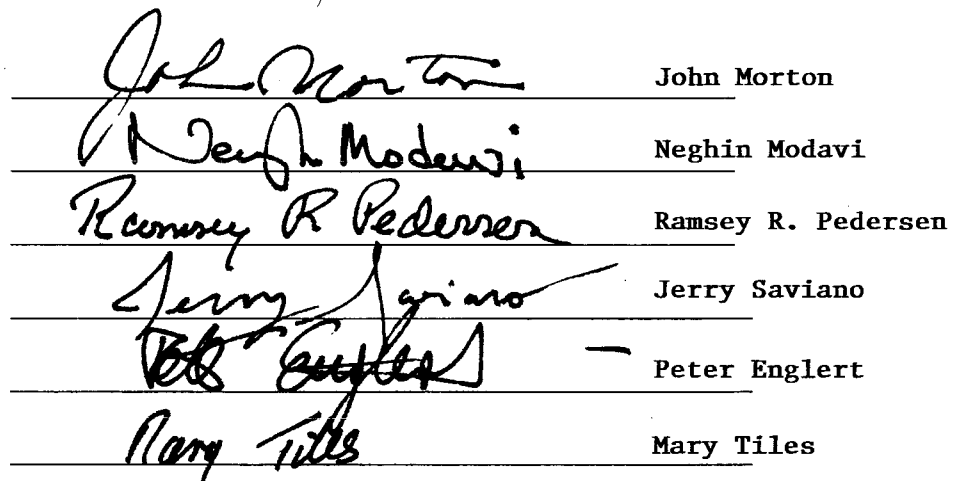 John Morton John Morton
Neghin Modavi Neghin Modavi
Ramsey R Pedersen Ramsey R. Pedersen
Jerry Saviano Jerry Saviano
Peter Englert
Mary Tiles Mary Tiles